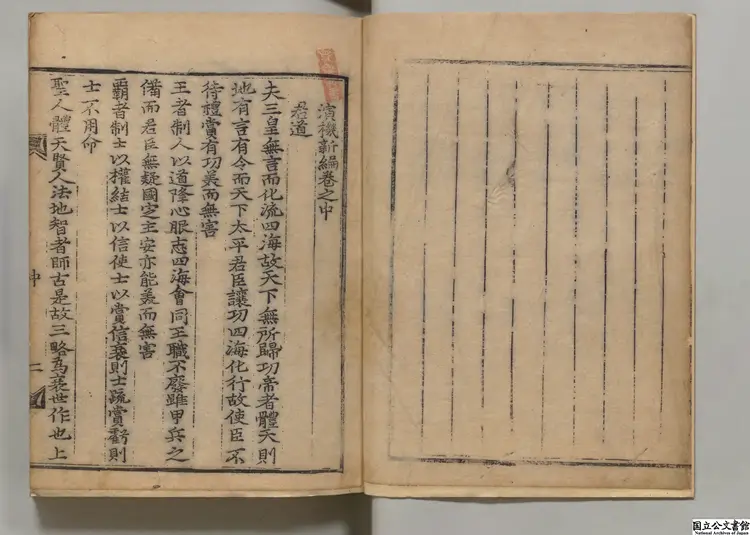 演機新編卷之中
君道
夫三皇無言而化流四海故天下無所歸功帝者體天則
地有言有令而天下太平君臣讓功四海化行故使臣不
待禮賞有功羙而無害
王者制人以道降心服志四海會同王職不廢雖甲兵之
備而君臣無疑國㝎主安亦能羙而無害
霸者制士以權結士以信使士以賞信衰則士疏賞虧則
士不用命
聖人體天賢人法地智者師古是故三略爲衰世作也上
中
二
国立公文書館
National Archives of Japan